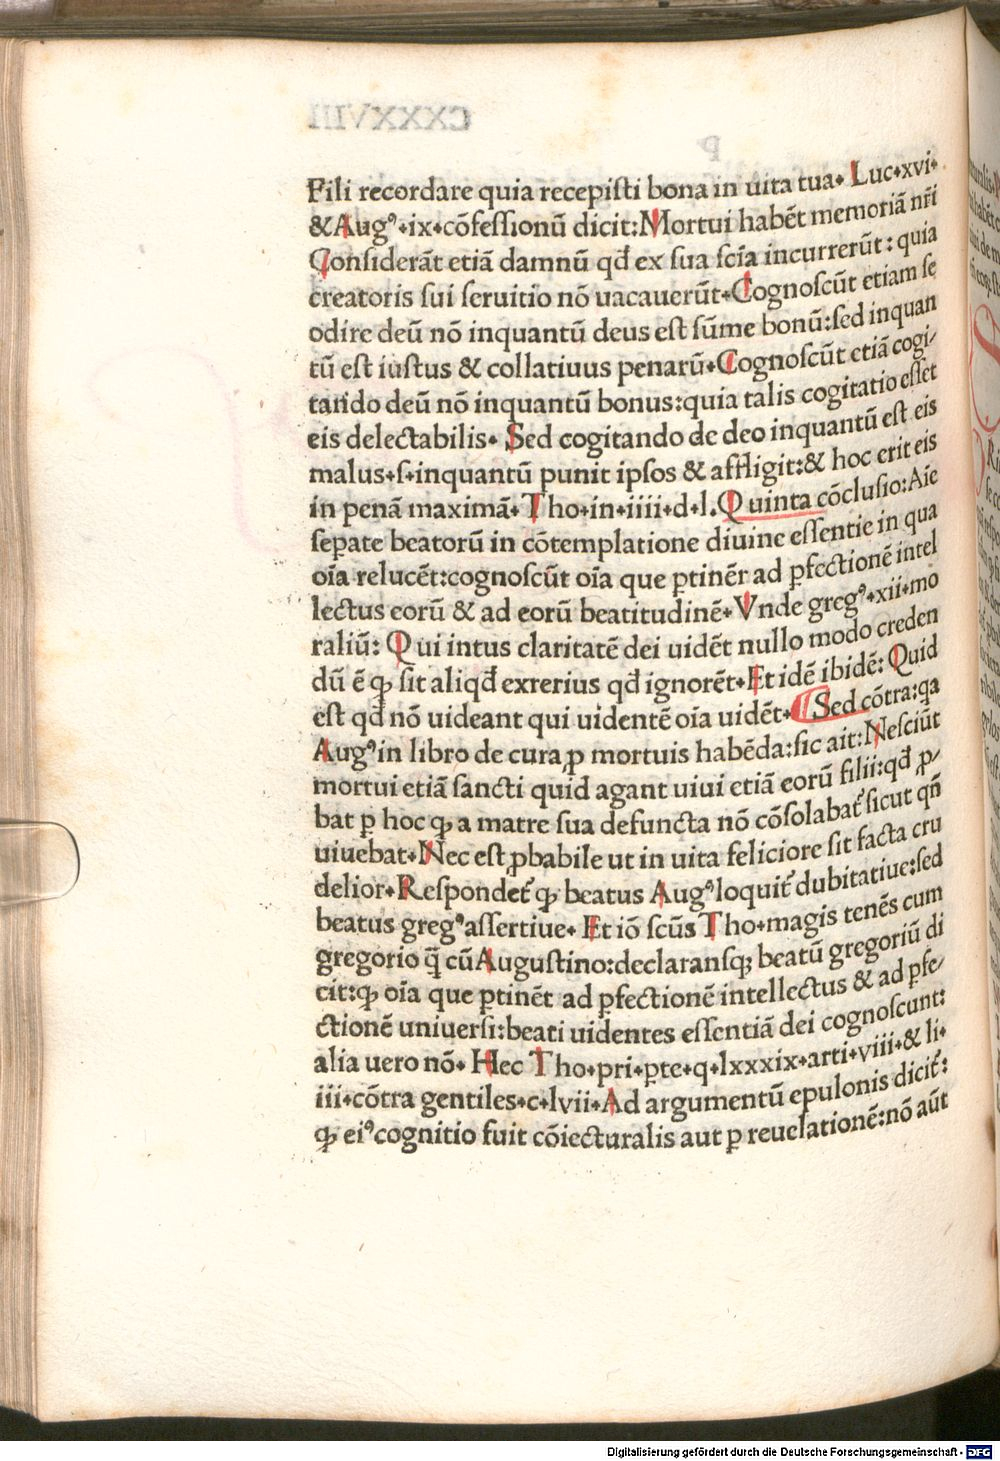 Fili recordare quia recepisti bona in uita tua. Luc.xvi.
&Augꝰ.ix.cōfessionū dicit:Mortui habēt memoriā nr̄i
Considerāt etiā damnū qd̄ ex sua sc̄ia incurrerūt: quia
creatoris sui seruitio nō uacauerūt.Cognoscūt etiam se
odire deū nō inquantū deus est sūme bonū:sed inquan
tū est iustus & collatiuus penarū.Cognoscūt etiā cogi/
tando deū nō inquantū bonus:quia talis cogitatio esset
eis delectabilis. Sed cogitando de deo inquantū est eis
malus.s.inquantū punit ipsos & affligit:& hoc erit eis
in penā maximā.Tho.in.iiii.d.l.Quinta cōclusio:Aīe
sepate beatorū in cōtemplatione diuine essentie in qua
oīa relucēt:cognoscūt oīa que ꝑtinēr ad ꝑfectionē intel
lectus eorū & ad eorū beatitudinē.Vnde gregꝰ.xii.mo
raliū: Qui intus claritatē dei uidēt nullo modo creden
dū ē ꝙ sit aliqd̄ exrerius qd̄ ignorēt.Et idē ibidē: Quid
est qd̄ nō uideant qui uidentē oīa uidēt. Sed cōtra:qa
Augꝰin libro de cura ꝓ mortuis habēda:sic ait:Nesciūt
mortui etiā sancti quid agant uiui etiā eorū filii:qd̄ ꝓ/
bat ꝑ hoc ꝙ a matre sua defuncta nō cōsolabat̄ sicut qn̄
uiuebat.Nec est ꝓbabile ut in uita feliciore sit facta cru
delior.Respondet̄ ꝙ beatus Augꝰloquit̄ dubitatiue:sed
beatus gregꝰassertiue. Et iō scūs Tho.magis tenēs cum
gregorio q̄ cū Augustino:declarans ꝙ beatū gregoriū di
cit:ꝙ oīa que ꝑtinēt ad ꝑfectionē intellectus & ad ꝑfe/
ctionē uniuersi:beati uidentes essentiā dei cognoscunt:
alia uero nō. Hec Tho.pri.ꝑte.q.lxxxix.arti.viii.& li.
iii.cōtra gentiles.c.lvii.Ad argumentū epulonis dicit̄:
ꝙ eiꝰcognitio fuit cōiecturalis aut ꝑ reuelationē:nō aūt
Digitalisierung gefördert durch die Deutsche Forschungsgemeinschaft - DFG